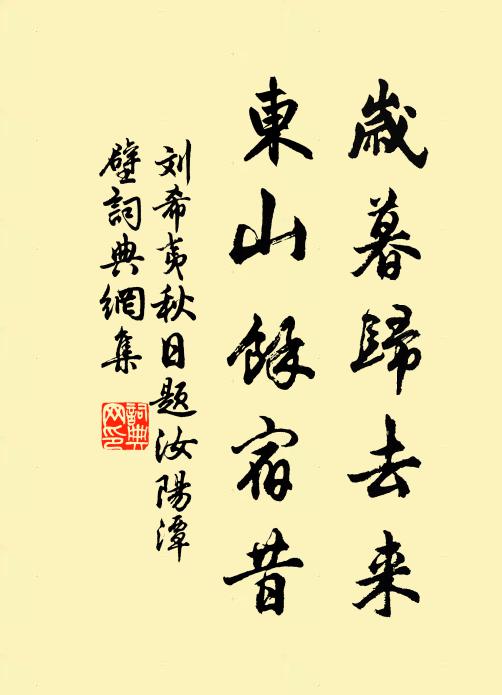 歲暮歸去来
東山餘宿昔
刘希夷秋日题汝陽潭
壁詞典網集
詞典
网印